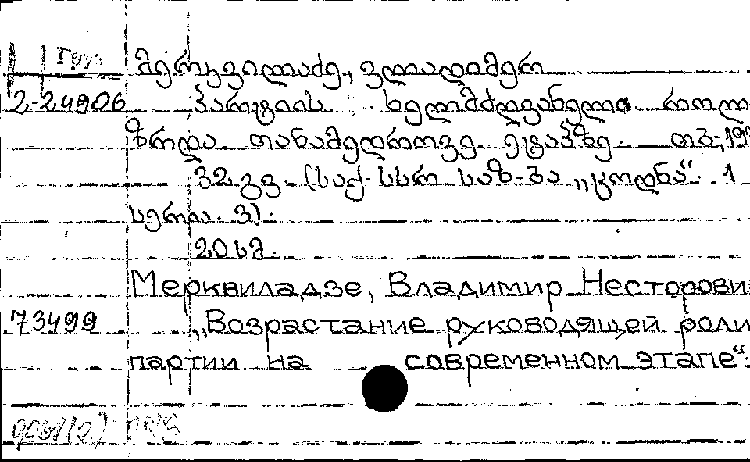 მერკვილაძე, ვლადიმერ
2-24906 პარტიის ხელმძღვანელი როლ
ზრდა თანამედროვე ეტაპზე. თბ., 19
32 გვ. (საქ. სსრ საზ-ბა „ცოდნა“. 1
სერია. 3).
20 კპ.
Мерквиладзе, Владимир Несторови
73499 „Возрастание руководящей роли
партии на современном этапе“.